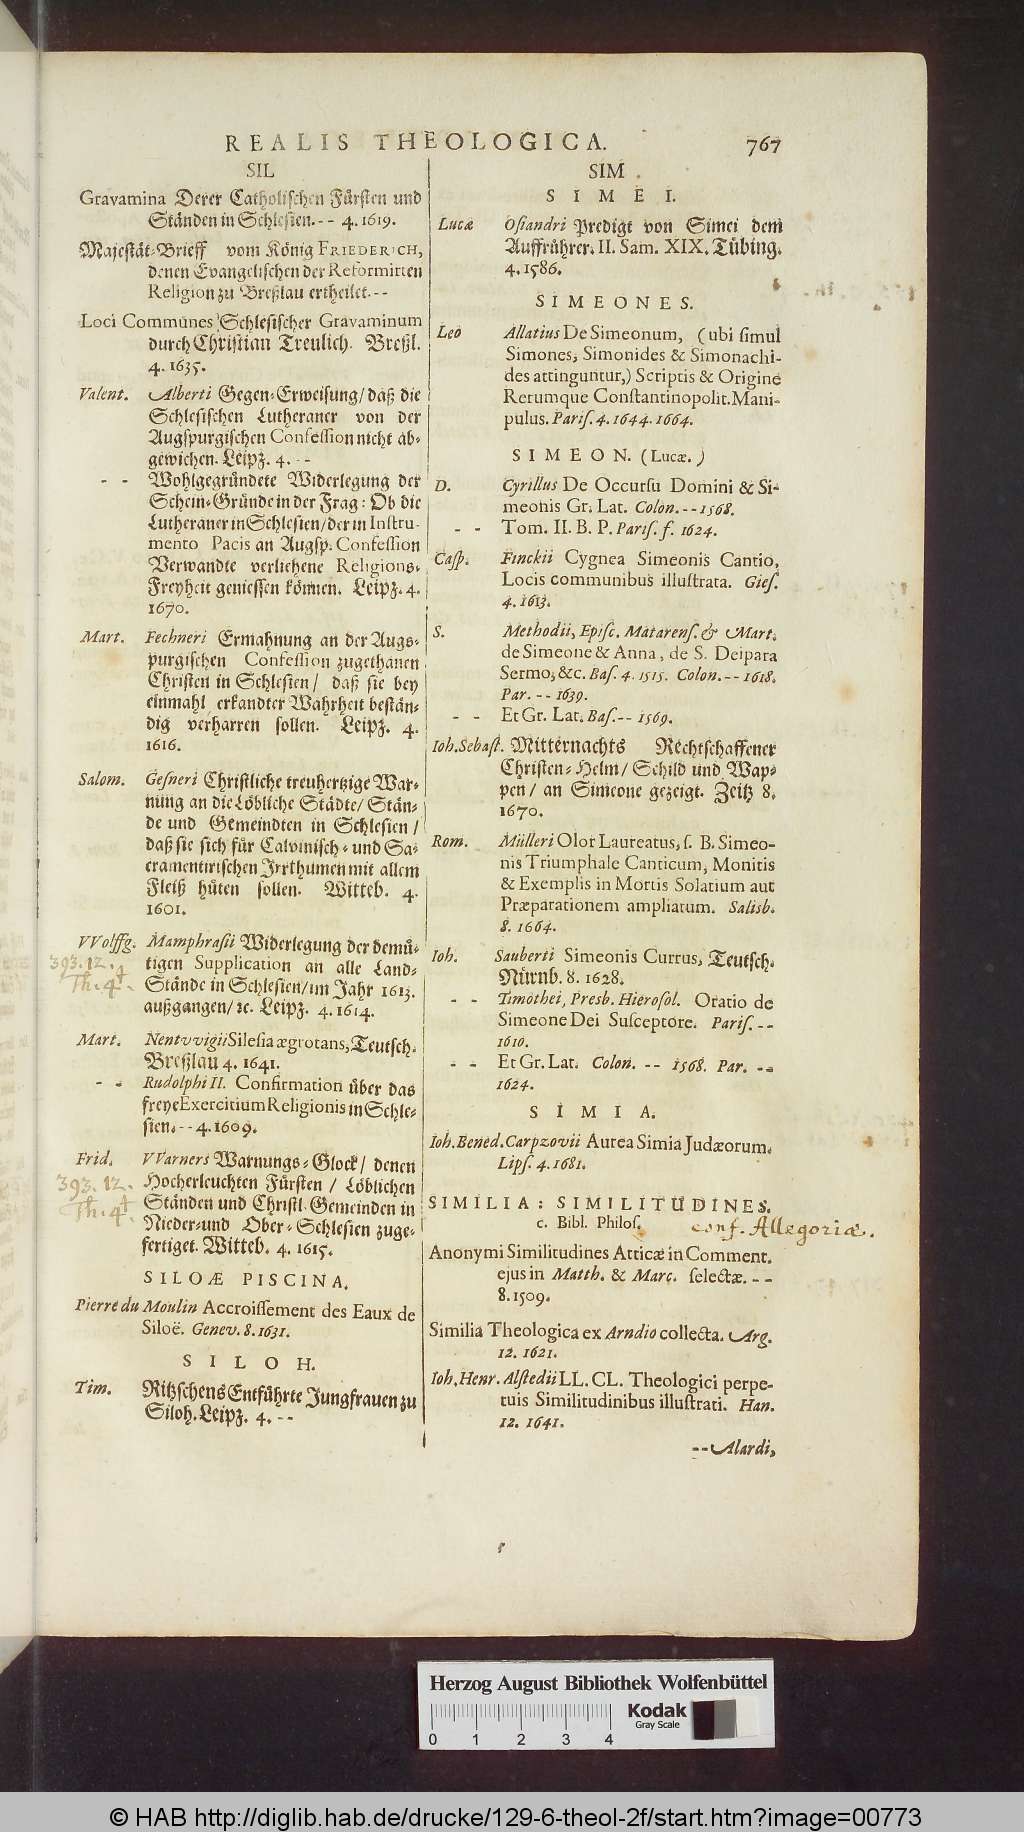 REALIS THEOLOGICA. 767
SIL
Gravamina Derer Catholischen Fürsten und
Ständen in Schlesien. -- 4. 1619.
Majestät-Brieff vom König FRIEDERICH,
denen Evangelischen der Reformirten
Religion zu Breßlau ertheilet. --
Loci Communes Schlesischer Gravaminum
durch Christian Treulich. Breßl.
4. 1635.
Valent. Alberti Gegen-Erweisung / daß die
Schlesischen Lutheraner von der
Augspurgischen Confession nicht ab-
gewichen. Leipz. 4. --
-- Wohlgegründete Widerlegung der
Schein-Gründe in der Frag: Ob die
Lutheraner in Schlesien / der in Instru-
mento Pacis an Augsp. Confession
Verwandte verliehene Religions-
Freyheit geniessen können. Leipz. 4.
1670.
Mart. Fechneri Ermahnung an der Augs-
purgischen Confession zugethanen
Christen in Schlesien / daß sie bey
einmahl erkandter Wahrheit bestän-
dig verharren sollen. Leipz. 4.
1616.
Salom. Gesneri Christliche treuhertzige War-
nung an die Löbliche Städte / Stän-
de und Gemeindten in Schlesien /
daß sie sich für Calvinisch- und Sa-
cramentirischen Irrthumen mit allem
Fleiß hüten sollen. Witteb. 4.
1601.
VVolffg. Mamphrasii Widerlegung der demü-
393. 12. tigen Supplication an alle Land-
Th. 4t. Stände in Schlesien / im Jahr 1613.
außgangen / ꝛc. Leipz. 4. 1614.
Mart. Nentvvigii Silesia ægrotans, Teutsch.
Breßlau 4. 1641.
-- Rudolphi II. Confirmation über das
freye Exercitium Religionis in Schle-
sien. -- 4. 1609.
Frid. VVarners Warnungs-Glock / denen
393. 12. Hocherleuchten Fürsten / Löblichen
Th. 4t Ständen und Christl. Gemeinden in
Nieder- und Ober-Schlesien zuge-
fertiget. Witteb. 4. 1615.
SILOÆ PISCINA.
Pierre du Moulin Accroissement des Eaux de
Siloë. Genev. 8. 1631.
SILOH.
Tim. Ritzschens Entführte Jungfrauen zu
Siloh. Leipz. 4. --
SIM
SIMEI.
Lucæ Osiandri Predigt von Simei dem
Auffrührer. II. Sam. XIX. Tübing.
4. 1586.
SIMEONES.
Leo Allatius De Simeonum, (ubi simul
Simones, Simonides & Simonachi-
des attinguntur,) Scriptis & Origine
Rerumque Constantinopolit. Mani-
pulus. Paris. 4. 1644. 1664.
SIMEON. (Lucæ.)
D. Cyrillus De Occursu Domini & Si-
meonis Gr. Lat. Colon. -- 1568.
-- Tom. II. B. P. Paris. f. 1624.
Casp. Finckii Cygnea Simeonis Cantio,
Locis communibus illustrata. Gies.
4. 1613.
S. Methodii, Episc. Matarens. & Mart.
de Simeone & Anna, de S. Deipara
Sermo, &c. Bas. 4. 1515. Colon. -- 1618.
Par. -- 1639.
-- Et Gr. Lat. Bas. -- 1569.
Ioh. Sebast. Mitternachts Rechtschaffener
Christen-Helm / Schild und Wap-
pen / an Simeone gezeigt. Zeitz 8.
1670.
Rom. Mülleri Olor Laureatus, s. B. Simeo-
nis Triumphale Canticum, Monitis
& Exemplis in Mortis Solatium aut
Præparationem ampliatum. Salisb.
8. 1664.
Ioh. Sauberti Simeonis Currus, Teutsch.
Nürnb. 8. 1628.
-- Timothei, Presb. Hierosol. Oratio de
Simeone Dei Susceptore. Paris. --
1610.
-- Et Gr. Lat. Colon. -- 1568. Par. --
1624.
SIMIA.
Ioh. Bened. Carpzovii Aurea Simia Judæorum.
Lips. 4. 1681.
SIMILIA: SIMILITUDINES.
c. Bibl. Philos. conf. Allegoriæ.
Anonymi Similitudines Atticæ in Comment.
ejus in Matth. & Marc. selectæ. --
8. 1509.
Similia Theologica ex Arndio collecta. Arg.
12. 1621.
Ioh. Henr. Alstedii LL. CL. Theologici perpe-
tuis Similitudinibus illustrati. Han.
12. 1641.
-- Alardi,
Herzog August Bibliothek Wolfenbüttel
Kodak
Gray Scale
0 1 2 3 4
© HAB http://diglib.hab.de/drucke/129-6-theol-2f/start.htm?image=00773